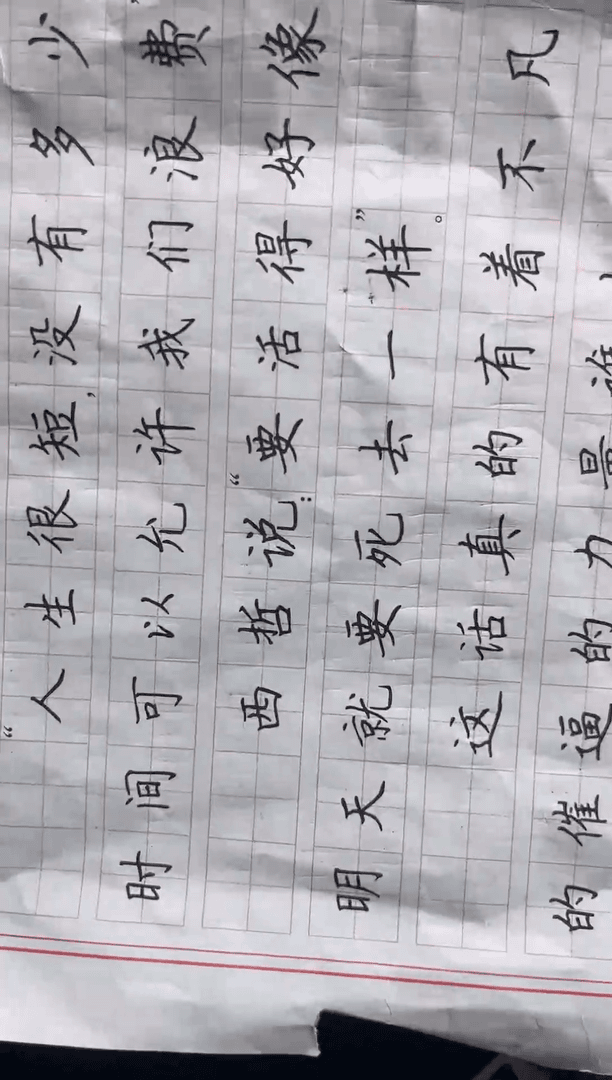 “人生很短，没有多少
时间可以允许我们浪费
西哲说：“要活得好像
明天就要死去一样”。
这话真的有着不凡
的催逼的力量